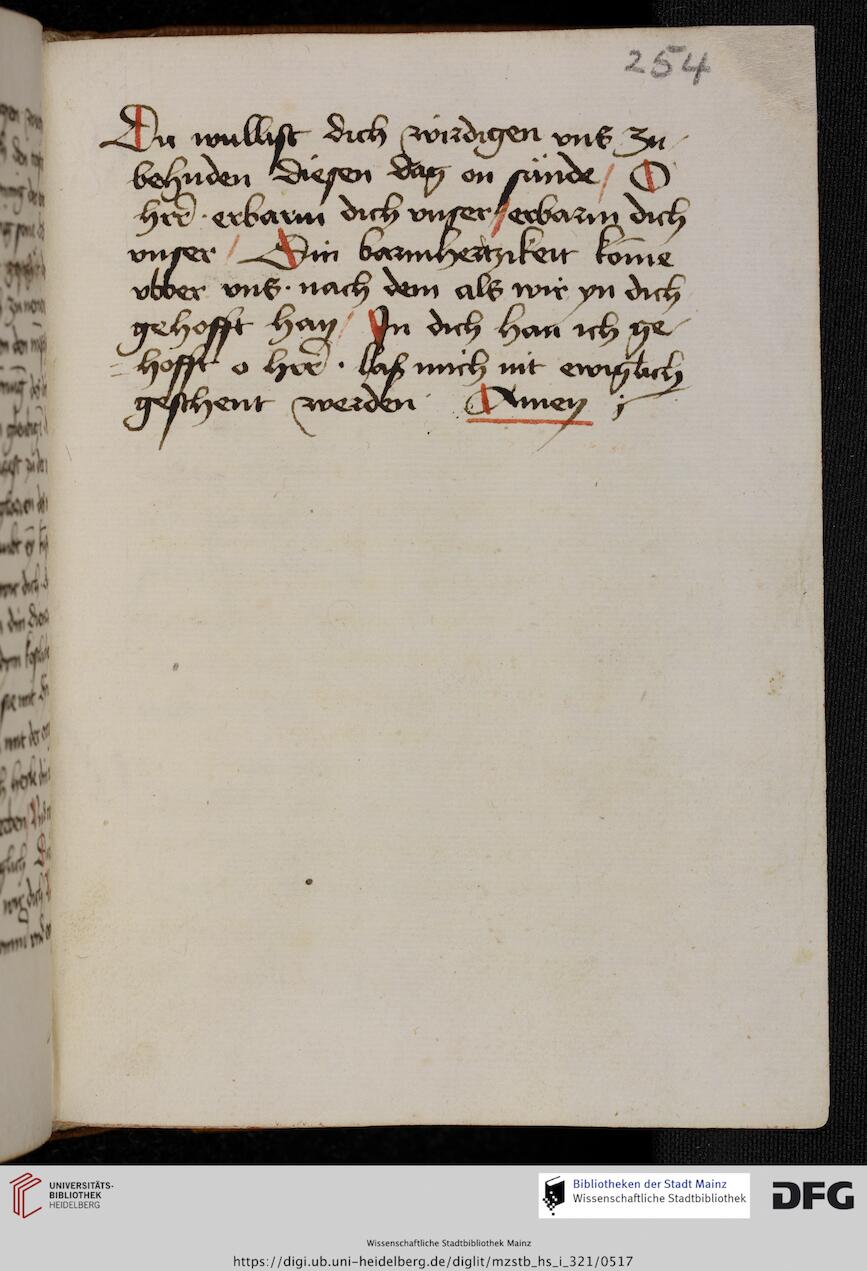 254
Du wullist dich wirdigen vns zu
behuden diesen dag on sünde / O
hrē · erbarm dich vnser / erbarm dich
vnser / Din barmhertzikeit kōme
vbber vns · nach dem als wir yn dich
gehofft han / In dich han ich ge
hofft o hrē · laß mich nit ewiglich
geschent werden Amen ;
UNIVERSITÄTS-
BIBLIOTHEK
HEIDELBERG
Bibliotheken der Stadt Mainz
Wissenschaftliche Stadtbibliothek
DFG
Wissenschaftliche Stadtbibliothek Mainz
https://digi.ub.uni-heidelberg.de/diglit/mzstb_hs_i_321/0517